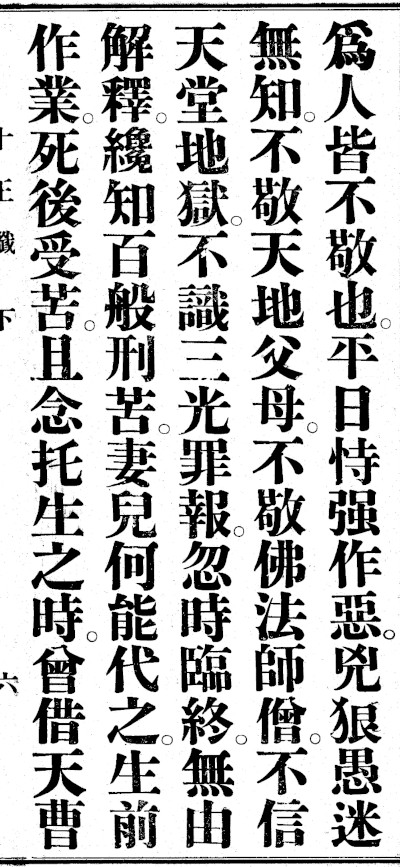 爲人皆不敬也。平日恃强作惡。兇狠愚迷
無知。不敬天地父母。不敬佛法師僧。不信
天堂地獄。不識三光罪報。忽時臨終。無由
解釋。纔知百般刑苦。妻兒何能代之。生前
作業。死後受苦。且念托生之時。曾借天曹
十王懺 下 六